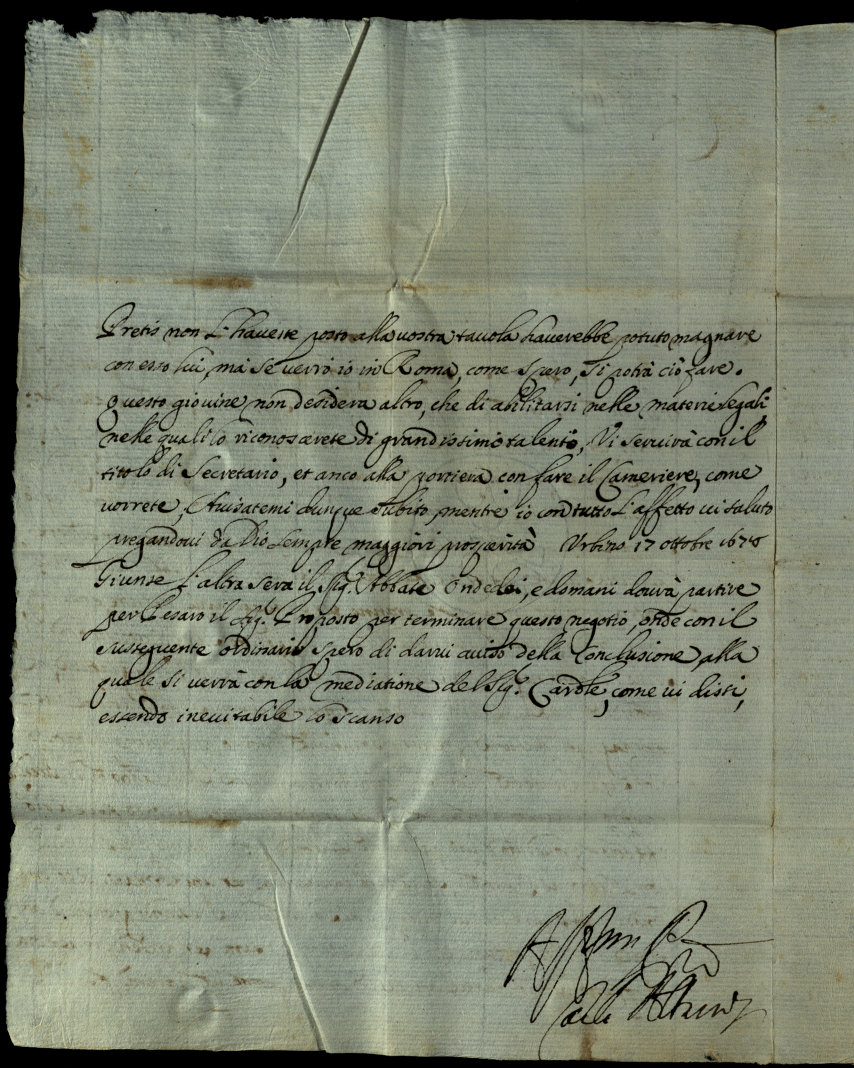 Pretis non l'haveste posto alla vostra tavola haverebbe potuto magnare
con esso lui, mà se verrò io in Roma, come spero, si potrà ciò fare.
Questo giovine non desidera altro, che di abilitarsi nelle materie legali,
nelle quali lo riconoscerete di grandissimo talento, Vi servirà con il
titolo di Secretario, et anco alla portiera con fare il Cameriere, come
vorrete, Avisatemi dunque subito, mentre io con tutto l'affetto vi saluto
pregandovi da Dio sempre maggiori prosperità Urbino 17 ottobre 1678
Giunse l'altra sera il Sig.r Abbate Ondedei, e domani dovrà partire
per Pesaro il Sig.r Proposto per terminare questo negotio, onde con il
susseguente ordinario spero di darvi aviso della conclusione, alla
quale si verrà con la mediatione del Sig.r Cardle, come vi dissi,
essendo inevitabile lo scanso
Aff.mo
Carlo Albani